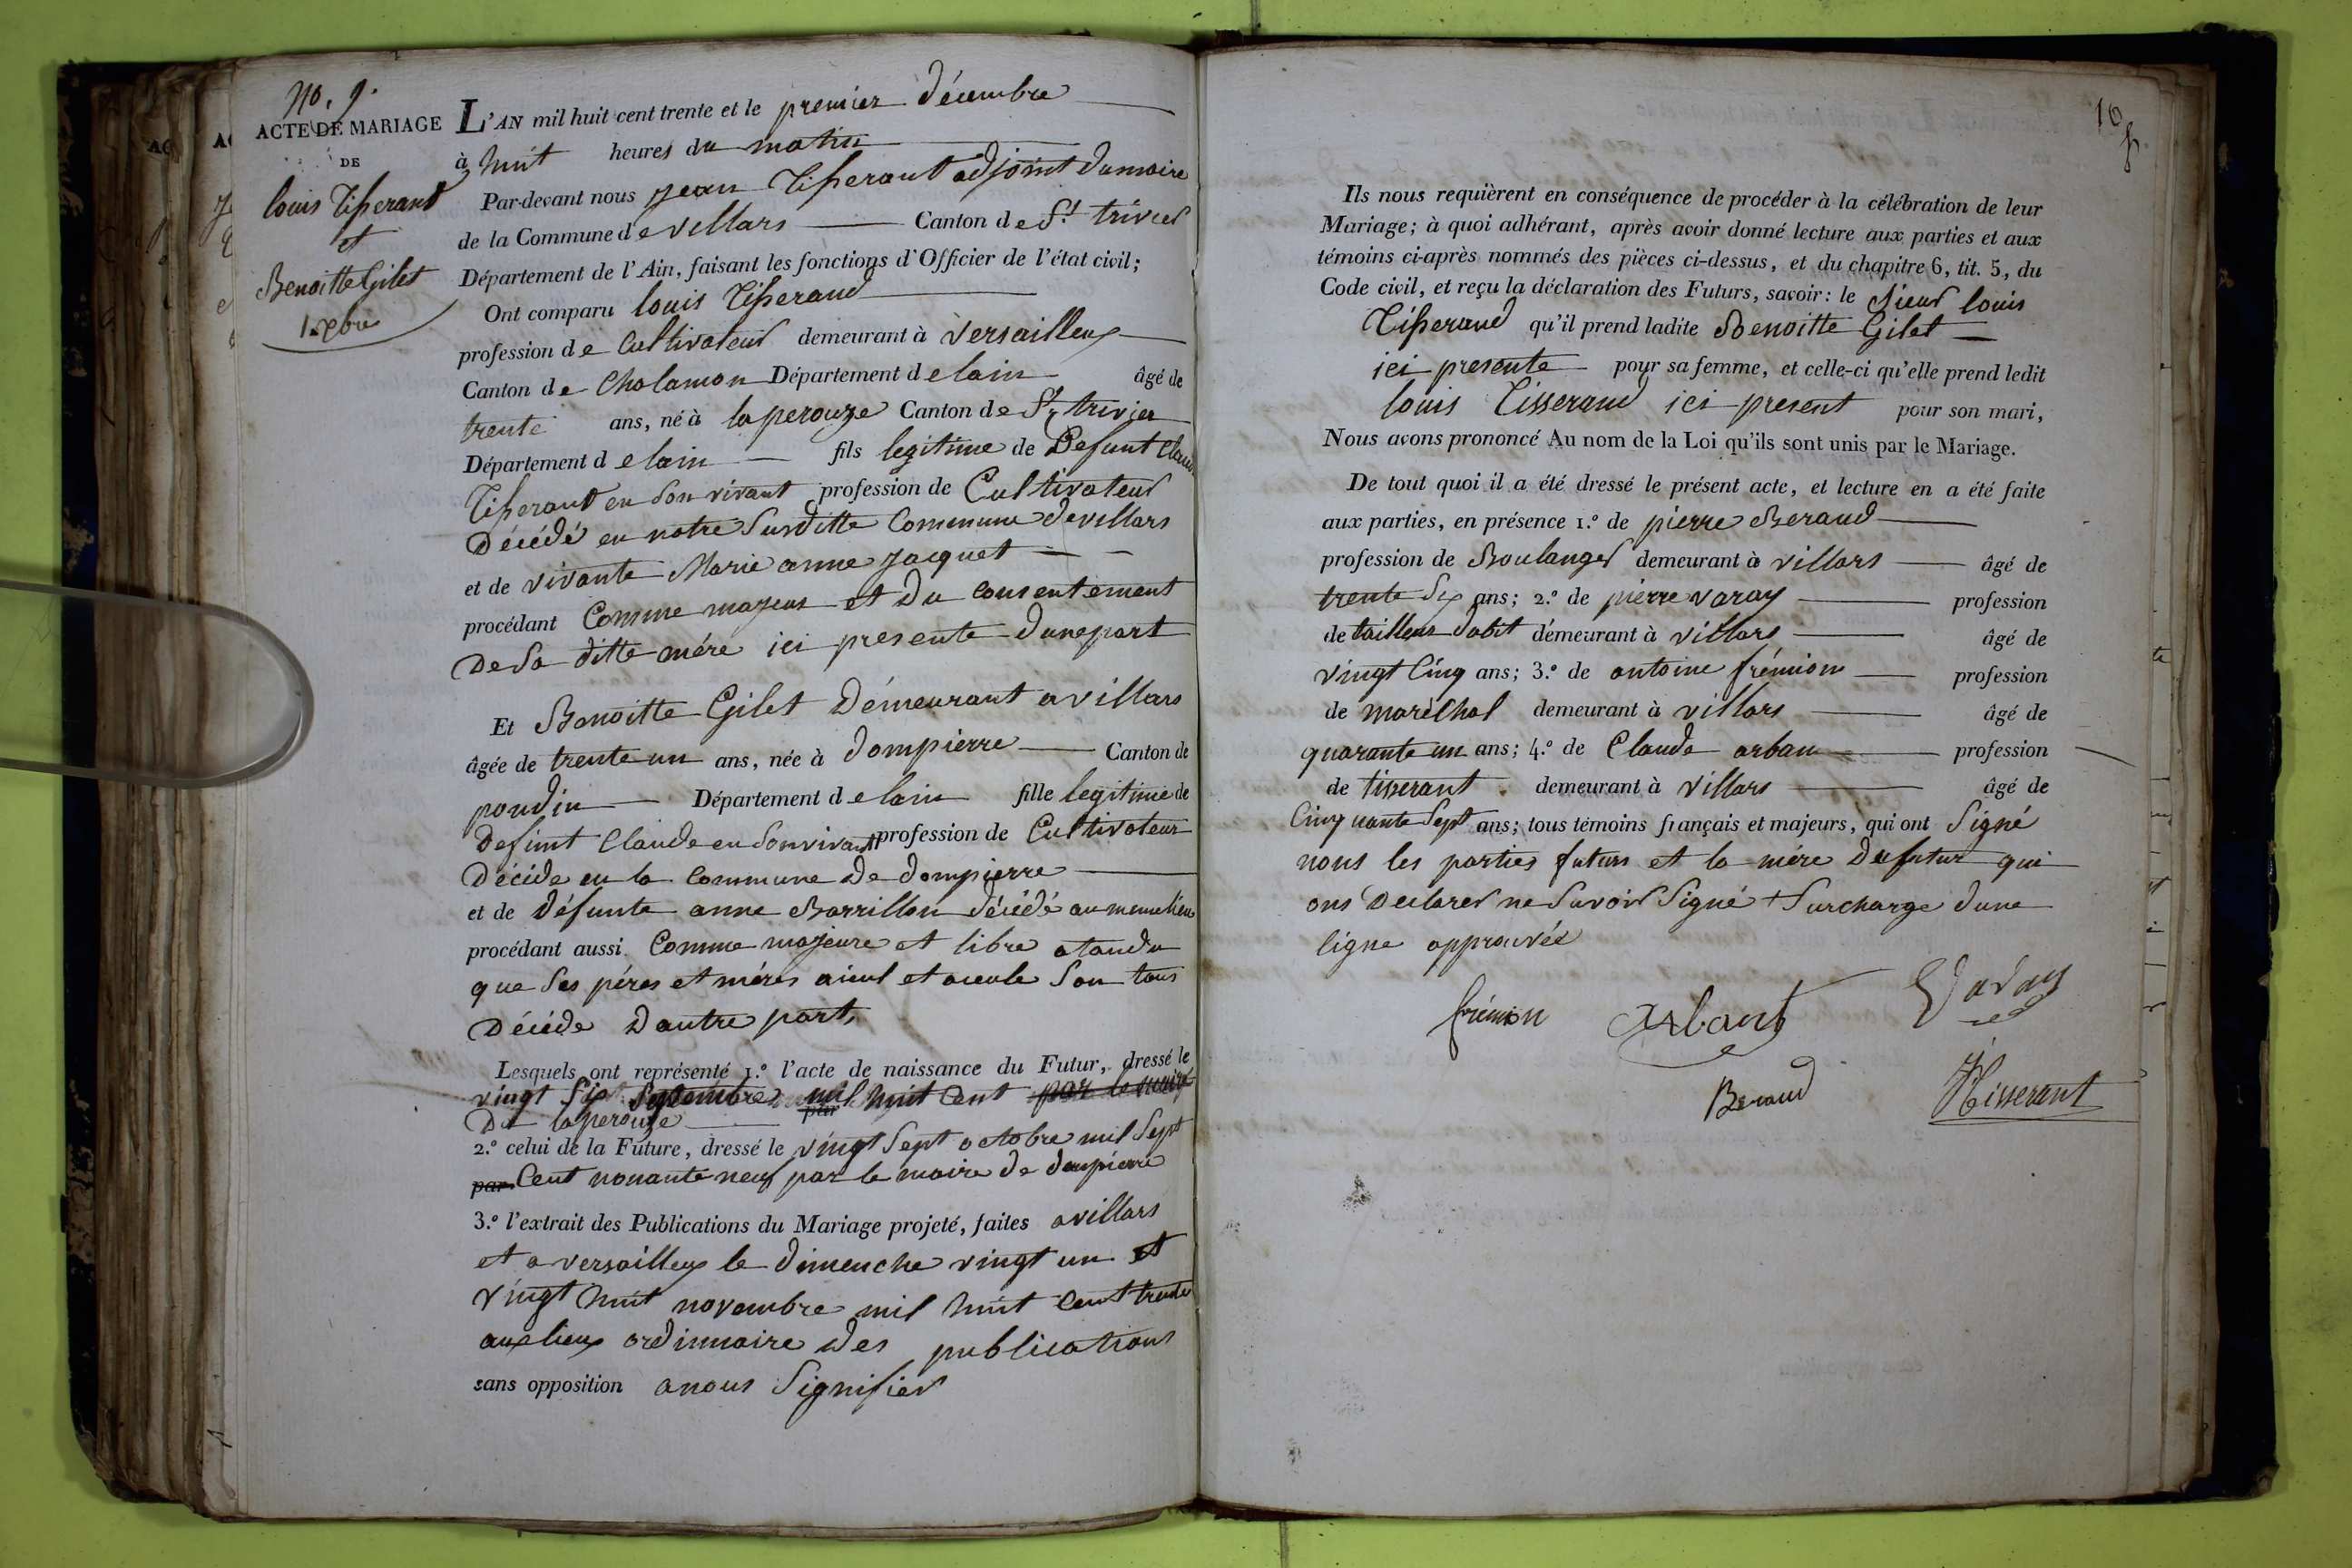 No. 9.
ACTE DE MARIAGE
DE
louis Tisserand
et
Benoitte Gilet
1. xbre
L'AN mil huit cent trente et le premier décembre
à huit heures du matin
Par-devant nous jean Tisserant adjoint dumaire
de la Commune de villars Canton de St. trivier
Département de l'Ain, faisant les fonctions d'Officier de l'état civil;
Ont comparu louis Tisserand
profession de Cultivateur demeurant à versailleux
Canton de Cholamon Département de lain âgé de
trente ans, né à laperouze Canton de St. trivier
Département d elain fils legitime de Defunt Claude
Tisserant en Son vivant profession de Cultivateur
Décédé en notre Susditte Commune de villars
et de vivante Marie anne jacquet
procédant Comme majeur et Du Consentement
De Sa ditte mére ici presente Dunepart
Et Benoitte Gilet Démeurant a villars
âgée de trente un ans, née à dompierre Canton de
pondin Département d elain fille legitime de
Defunt Claude en Son vivant profession de Cultivateur
Décide en la Commune De dompierre
et de défunte anne Barrillon décédé au meme lieu
procédant aussi Comme majeure et libre atandu
que Ses péres et méres aieul et aieule Son tous
Décide Dautre part,
Lesquels ont représenté 1.º l'acte de naissance du Futur, dressé le
vingt Six Septembre mil huit Cent par le maire
De laperouze par
2.º celui de la Future, dressé le vingt Sept octobre mil Sept
par Cent nonante neuf par le maire de dompierre
3.º l'extrait des Publications du Mariage projeté, faites a villars
et a versailleux le dimenche vingt un et
vingt huit novembre mil huit Cent trente
aux lieux ordinnaire Des publications
sans opposition anous Signifier
16
Ils nous requièrent en conséquence de procéder à la célébration de leur
Mariage; à quoi adhérant, après avoir donné lecture aux parties et aux
témoins ci-après nommés des pièces ci-dessus, et du chapitre 6, tit. 5, du
Code civil, et reçu la déclaration des Futurs, savoir: le Sieur louis
Tisserand qu'il prend ladite Benoitte Gilet
ici presente pour sa femme, et celle-ci qu'elle prend ledit
louis Tisserand ici present pour son mari,
Nous avons prononcé Au nom de la Loi qu'ils sont unis par le Mariage.
De tout quoi il a été dressé le présent acte, et lecture en a été faite
aux parties, en présence 1.º de pierre Beraud
profession de Boulanger demeurant à villars âgé de
trente Six ans; 2.º de pierre varay profession
de tailleur dabit démeurant à villars âgé de
vingt Cinq ans; 3.º de antoine frémion profession
de maréchal demeurant à villars âgé de
quarante un ans; 4.º de Claude arban profession
de tisserant demeurant à villars âgé de
Cinquante Sept ans; tous témoins français et majeurs, qui ont Signé
nous les parties futurs et la mére Du futur qui
ons Declarer ne Savoir Signé + Surcharge dune
ligne approuvée
frémion Arbant Varay
Beraud JTisserant